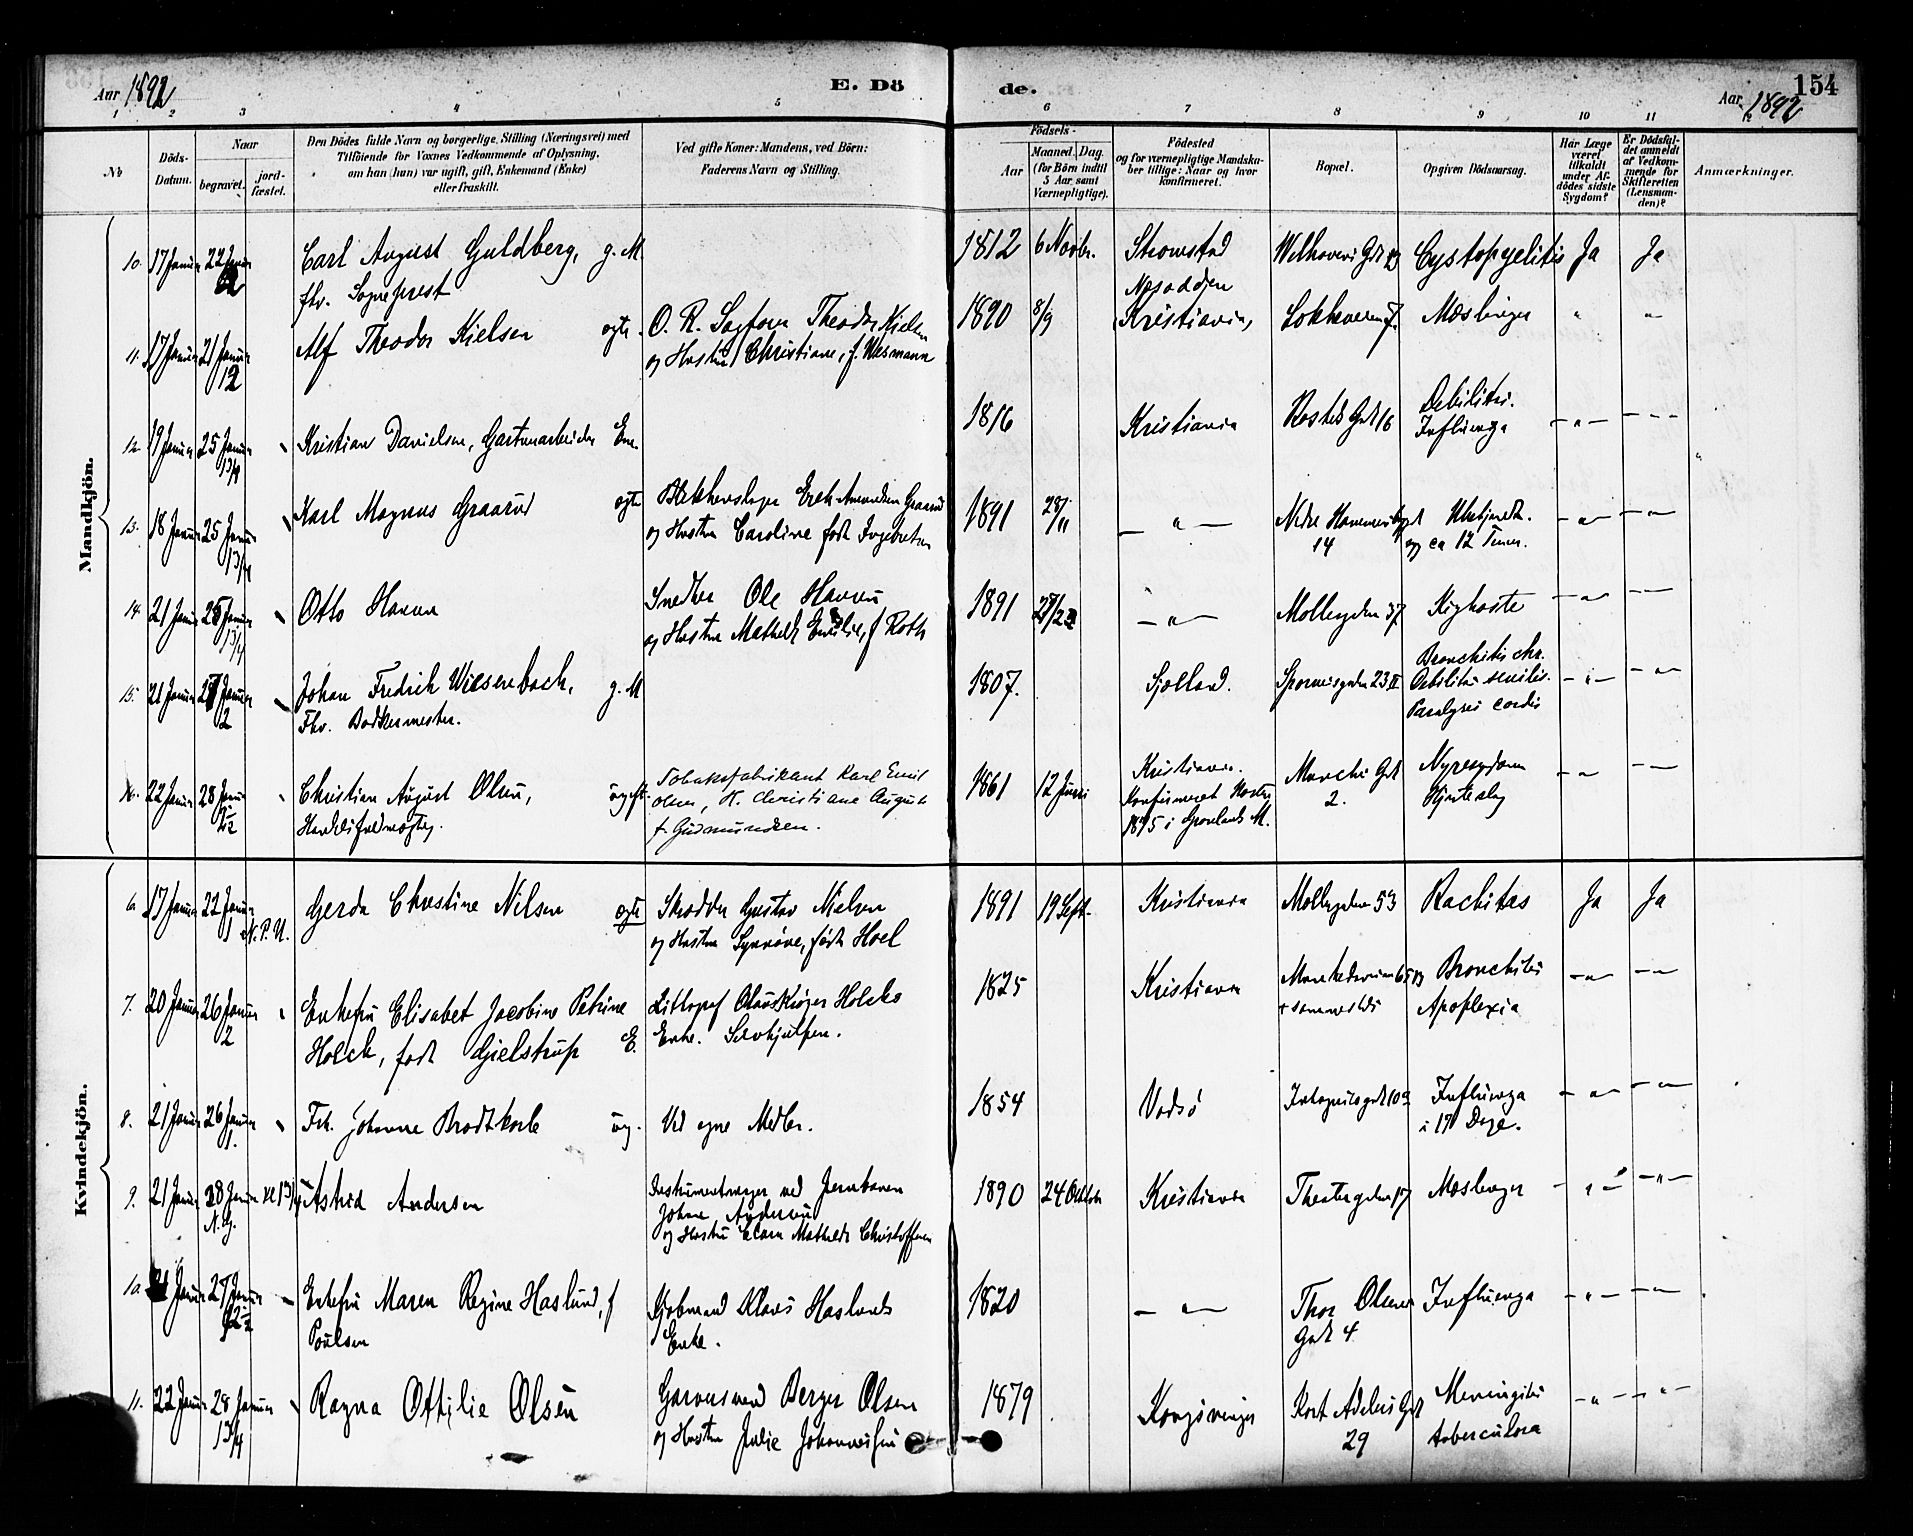 Aar 1892
E. Döde.
154
Aar 1892
1 2 3 4 5 6 7 8 9 10 11
No
Döds-Datum.
Naar
begravet.
jordfæstet.
Den Dödes fulde Navn og borgerlige Stilling (Næringsvei) med
Tilföiende for Voxnes Vedkommende af Oplysning,
om han (hun) var ugift, gift, Enkemand (Enke)
eller fraskilt.
Ved gifte Koner: Mandens, ved Börn:
Faderens Navn og Stilling.
Födsels-
Aar
Maaned. Dag.
(for Börn indtil
5 Aar samt
Værnepligtige).
Födested
og for værnepligtige Mandska-
ber tillige: Naar og hvor
konfirmeret.
Bopæl.
Opgiven Dödsaarsag.
Har Læge
været
tilkaldt
under Af-
dödes sidste
Sygdom?
Er Dödsfal-
det anmeldt
af Vedkom-
mende for
Skifteretten
(Lensman-
den)?
Anmærkninger.
Mandkjön.
10. 17 Januar 22 Januar Carl August Guldberg, g. M. 1812 6 Novbr. Stromstad Cystopyelitis Ja Ja
fhv. Sogneprest Nesodden
11. 17 Januar 21 Januar Alf Theodor Nielsen ægte O. R. Sagform Theodor Nielsen 1890 8/9 Kristiania, Løkkeveien 7. Mæslinger " "
12 og Hustru Christiane, f. Wesmann
12. 19 Januar 25 Januar Kristian Davielsen, Gartnerarbeider Em. 1816 Kristiania Rosteds Gade 16 Debilitas.
13/4 Influenza
13. 18 Januar 25 Januar Karl Magnus Graarud ægte Blikkenslager Erik Amundsen Graarud 1891 28/11 — " — Nedre Hammersbg.
13/4 og Hustru Caroline født Ingebretsen 14 og ca 12 Timer.
14. 21 Januar 25 Januar Otto Hansen Snedker Ole Hansen 1891 — " — Møllergaden 37 Kighoste
13/4 og Hustru Mathilde Emilie, f Roth
15. 21 Januar 27 Januar Johan Fredrik Wiesenbach, g. M 1807. Sjælland. Bronchitis chr.
2 Fhv. Bødkermester. Debilitas senilis.
Paralysis cordis
22 Januar 28 Januar Christian August Olsen, ugift Tobaksfabrikant Karl Emil 1861 12 Juni Kristiania. Munchs Gade Nyresygdom
Handelsfuldmægtig. Olsen, H. Christiane August Konfirmeret Høsten 2. Hjerteslag
f. Gudmundsen. 1875 i Grønlands M.
Kvindekjön.
6. 17 Januar 22 Januar Gerda Christine Nilsen ægte Skrædder Gustav Nielsen 1891 19 Sept. Kristiania Møllergaden 53 Rachitas Ja Ja
N. P. U. og Hustru Synnøve, født Hoel
7. 20 Januar 26 Januar Enkefru Elisabet Jacobine Petrine Holcks 1825 Kristiania Bronchitis
2 Holck, født Gjelstrup E. Enke. Selvhjulpen. Apoplexia
8. 21 Januar 26 Januar Frk. Johanne Brodtkorb ug. Ved egne Midler. 1854 Vadsø Influenza
1. i 17 Dage.
9. 21 Januar 28 Januar Astrid Andersen Instrumentmager ved Jernbanen 1890 24 Oktober Kristiania Theatergaden 17 Mæslinger
N. G. Johan Andersen
og Hustru Clara Mathilde Christoffersen
10. 21 Januar 27 Januar Enkefru Maren Regine Haslund, f Klaus Haslunds 1820 — " — Thor Olsens Influenza
Poulsen Enke. Gade 4
11. 22 Januar 28 Januar Ragna Ottilie Olsen Garversvend Berger Olsen 1879 Kongsvinger Kort Adelers Gade Meningitis
13/4 og Hustru Julie Johannessen 29 tuberculosa